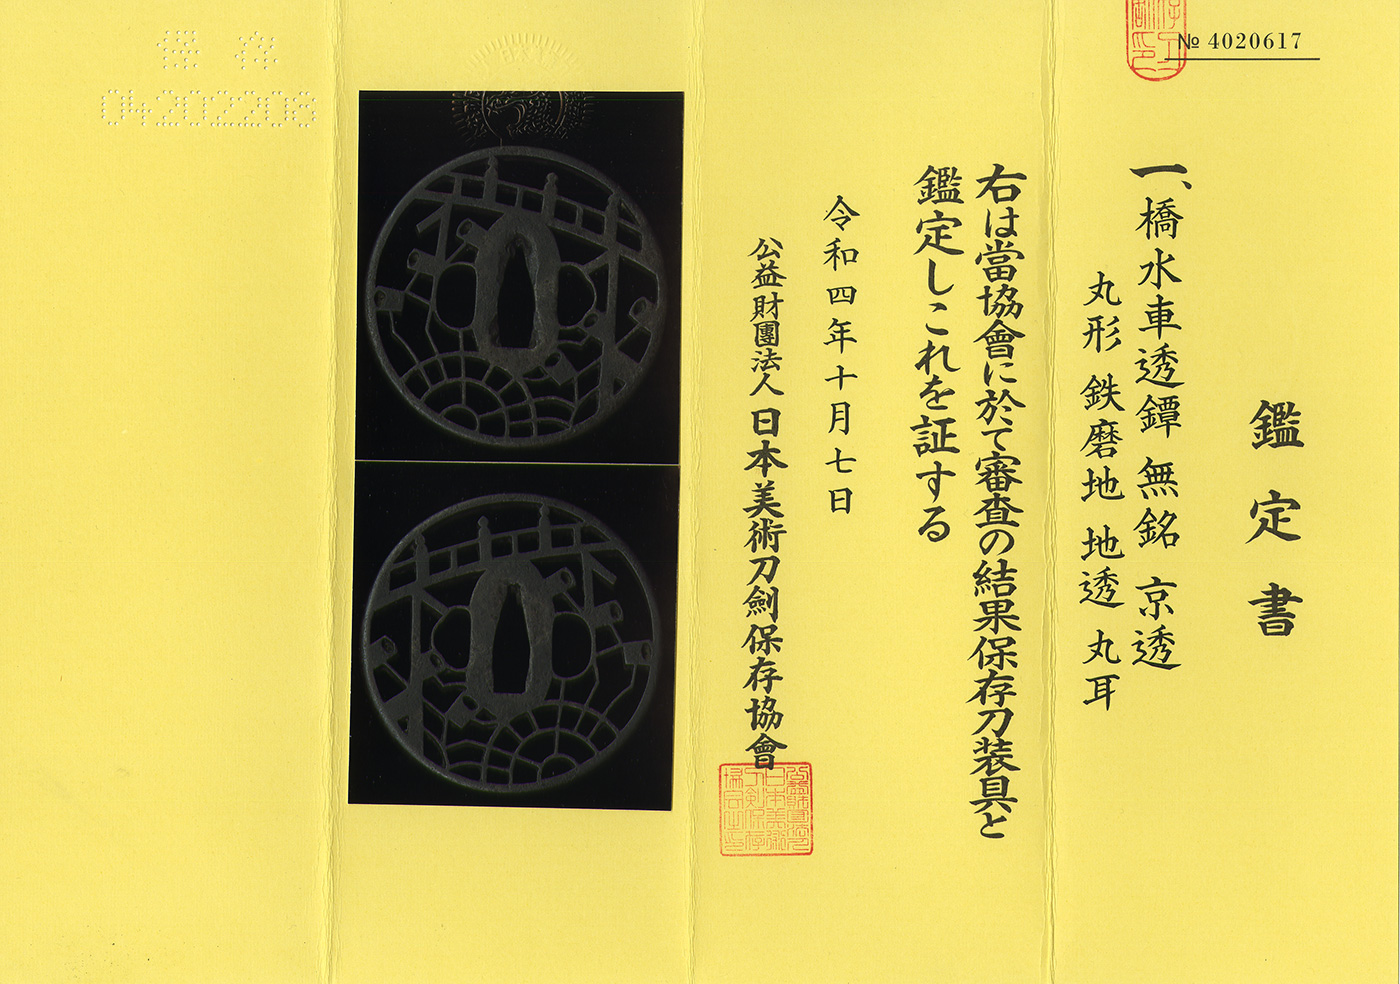 № 4020617
鑑定書
一、橋水車透鐔 無銘 京透
丸形 鉄磨地 地透 丸耳
右は當協會に於て審査の結果保存刀装具と
鑑定しこれを証する
令和四年十月七日
公益財團法人 日本美術刀劍保存協會
保存
04202208